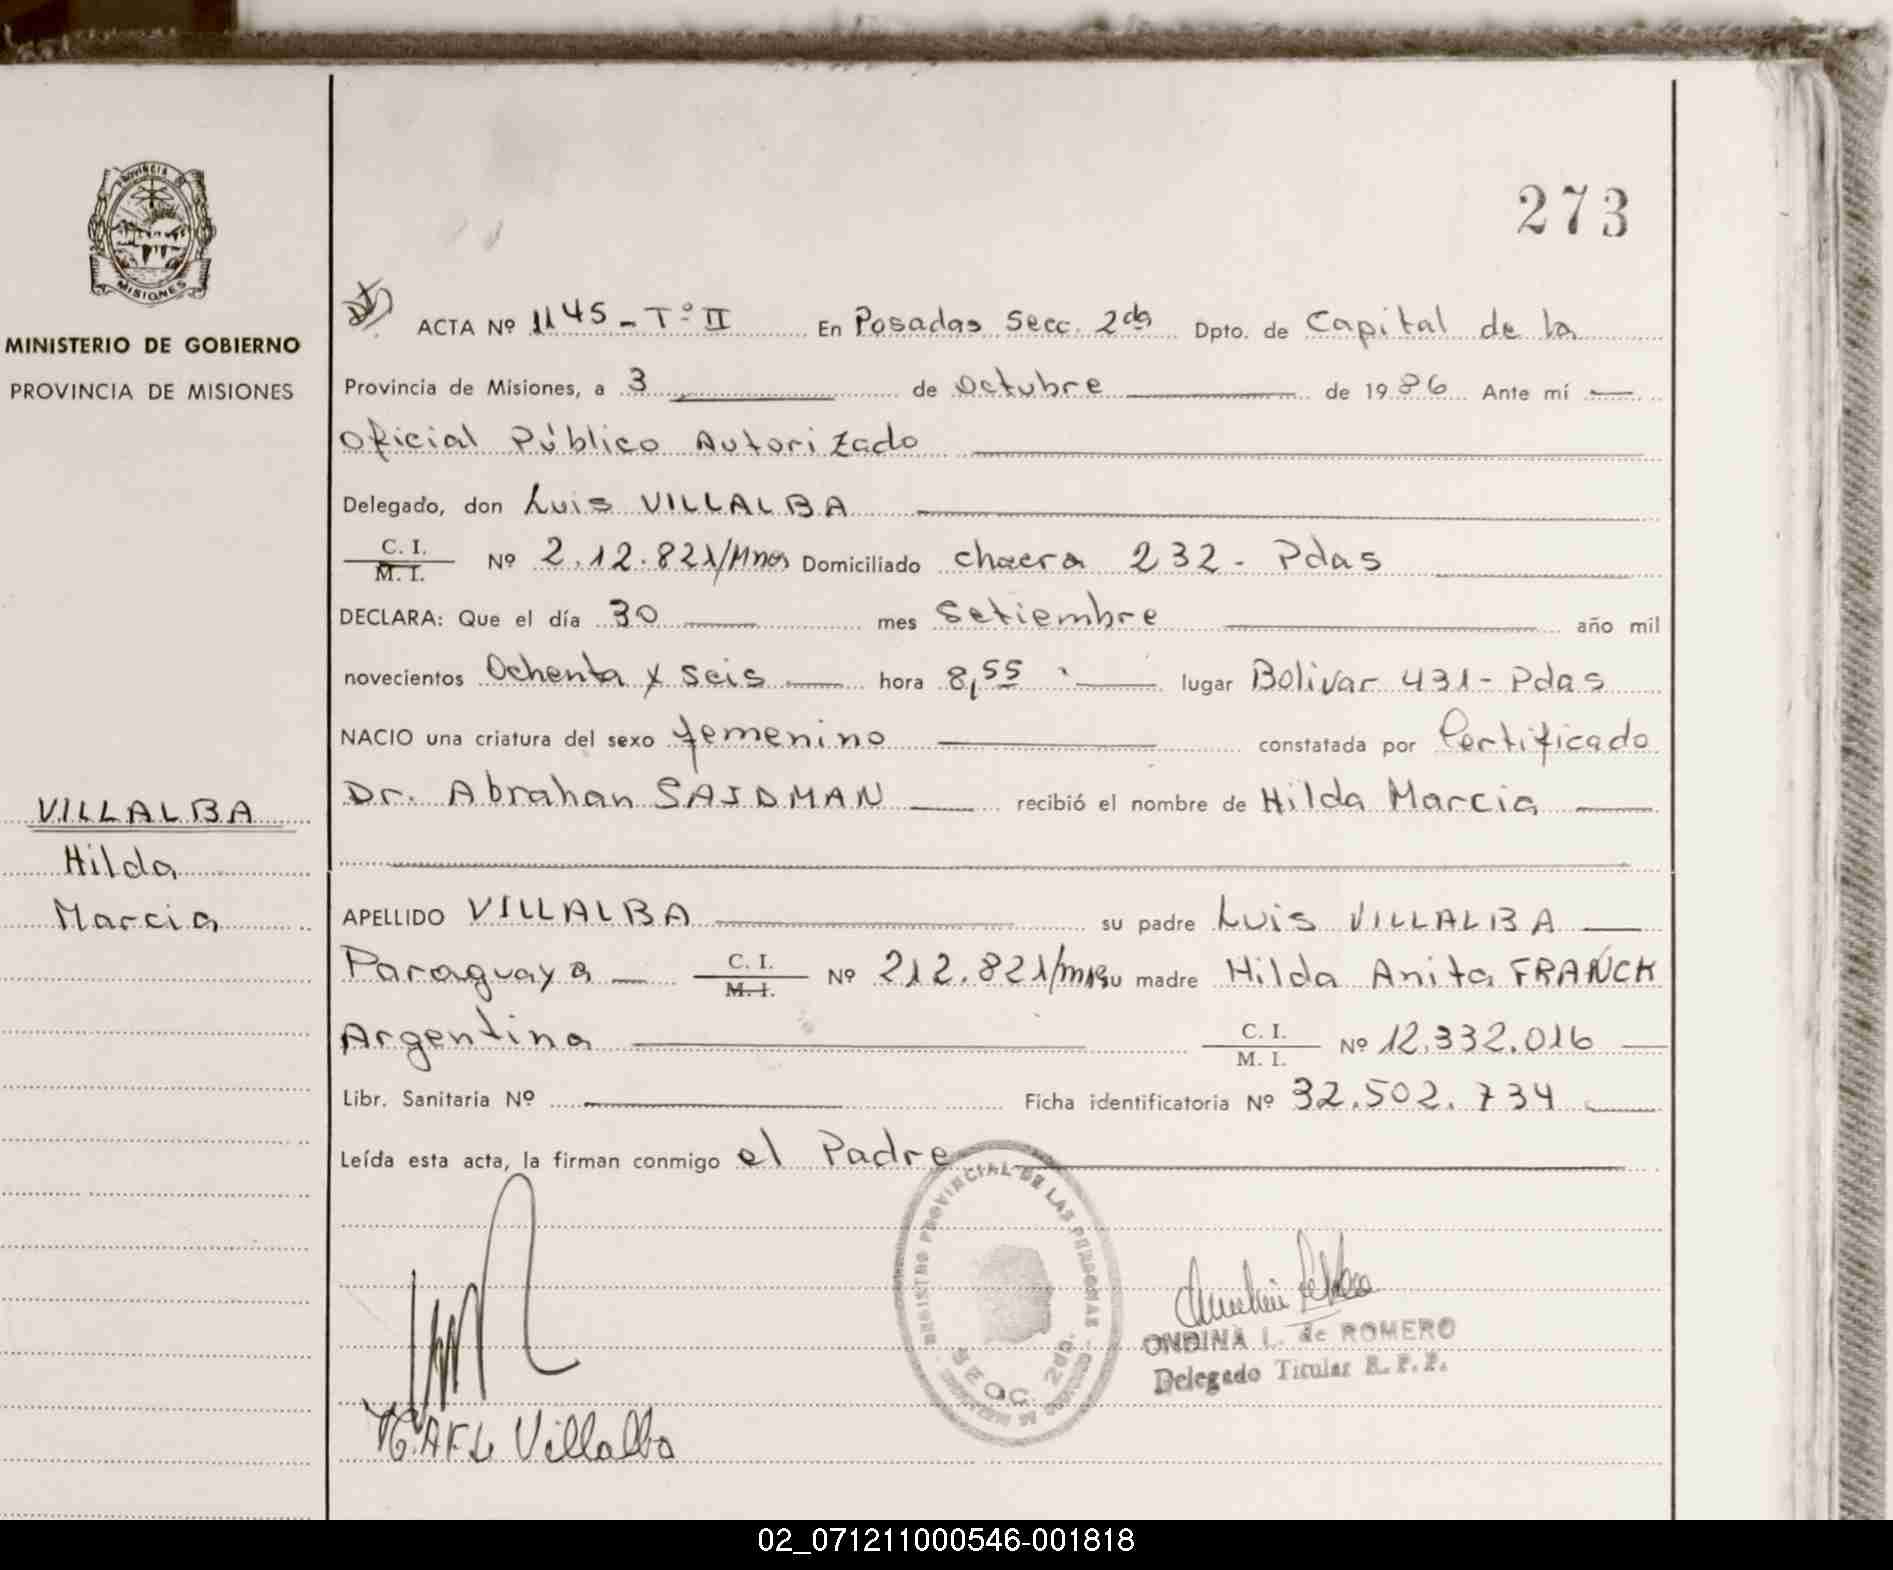 273
PROVINCIA D
MISIONES
MINISTERIO DE GOBIERNO
PROVINCIA DE MISIONES
ACTA Nº 1145 - Tº II En Posadas Secc. 2da Dpto. de Capital de la
Provincia de Misiones, a 3 de Octubre de 1986 Ante mí
Oficial Público Autorizado
Delegado, don Luis VILLALBA
C. I.
M. I.
Nº 2.12.821/Mnes Domiciliado chacra 232 - Pdas
DECLARA: Que el día 30 mes Setiembre año mil
novecientos Ochenta y seis hora 8,55 lugar Bolivar 431 - Pdas
NACIO una criatura del sexo femenino constatada por Certificado
Dr. Abrahan SAIDMAN recibió el nombre de Hilda Marcia
VILLALBA
Hilda
Marcia
APELLIDO VILLALBA su padre Luis VILLALBA
Paraguaya C. I.
M. I.
Nº 212.821/mns su madre Hilda Anita FRANCK
Argentina C. I.
M. I.
Nº 12.332.016
Libr. Sanitaria Nº Ficha identificatoria Nº 32.502.734
Leída esta acta, la firman conmigo el Padre
REGISTRO PROVINCIAL DE LAS PERSONAS
SECC. 2da.
ONDINA L. de ROMERO
Delegado Titular R. P. P.
Villalba
02_071211000546-001818